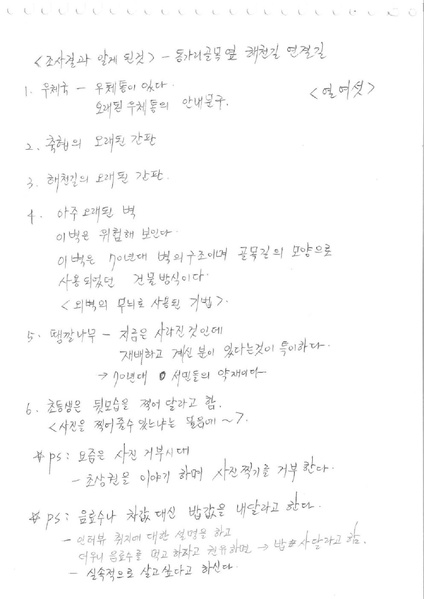 <조사결과 알게 된것> - 동가리골목 옆 해천길 연결길
<열여섯>
1. 우체국 - 우체통이 있다.
오래된 우체통의 안내문구.
2. 축협의 오래된 간판
3. 해천길의 오래된 간판.
4. 아주 오래된 벽
이벽은 위험해 보인다.
이벽은 70년대 벽의 구조이며 골목길의 모양으로
사용되었던 건물방식이다.
<외벽의 무늬로 사용된 기법>.
5. 땡깔나무 - 지금은 사라진것인데
재배하고 계신분이 있다는것이 특이하다.
→ 70년대 서민들의 약재이다
6. 초등생은 뒷모습을 찍어 달라고 함.
<사진을 찍어줄수 있느냐는 물음에~>.
* ps: 요즘은 사진 거부시대
- 초상권을 이야기 하며 사진찍기를 거부한다.
* ps: 음료수나 차값 대신 밥값을 내달라고 한다.
- 인터뷰 취지에 대한 설명을 하고
더우니 음료수를 먹고 하자고 권유하면 → 밥 사달라고 함.
- 실속적으로 살고싶다고 하신다.